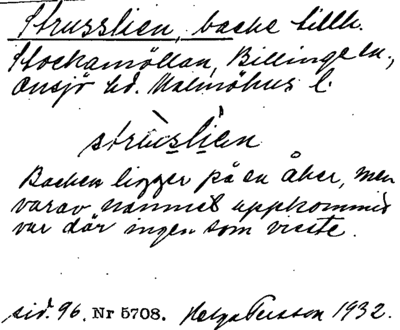 Strusslien, backe tillh.
Stockamöllan, Billinge sn.,
Onsjö hd. Malmöhus l.
strùslìen
Backen ligger på en åker, men
varav namnet uppkommit
var där ingen som visste.
sid. 96. Nr 5708. Helge Persson 1932.